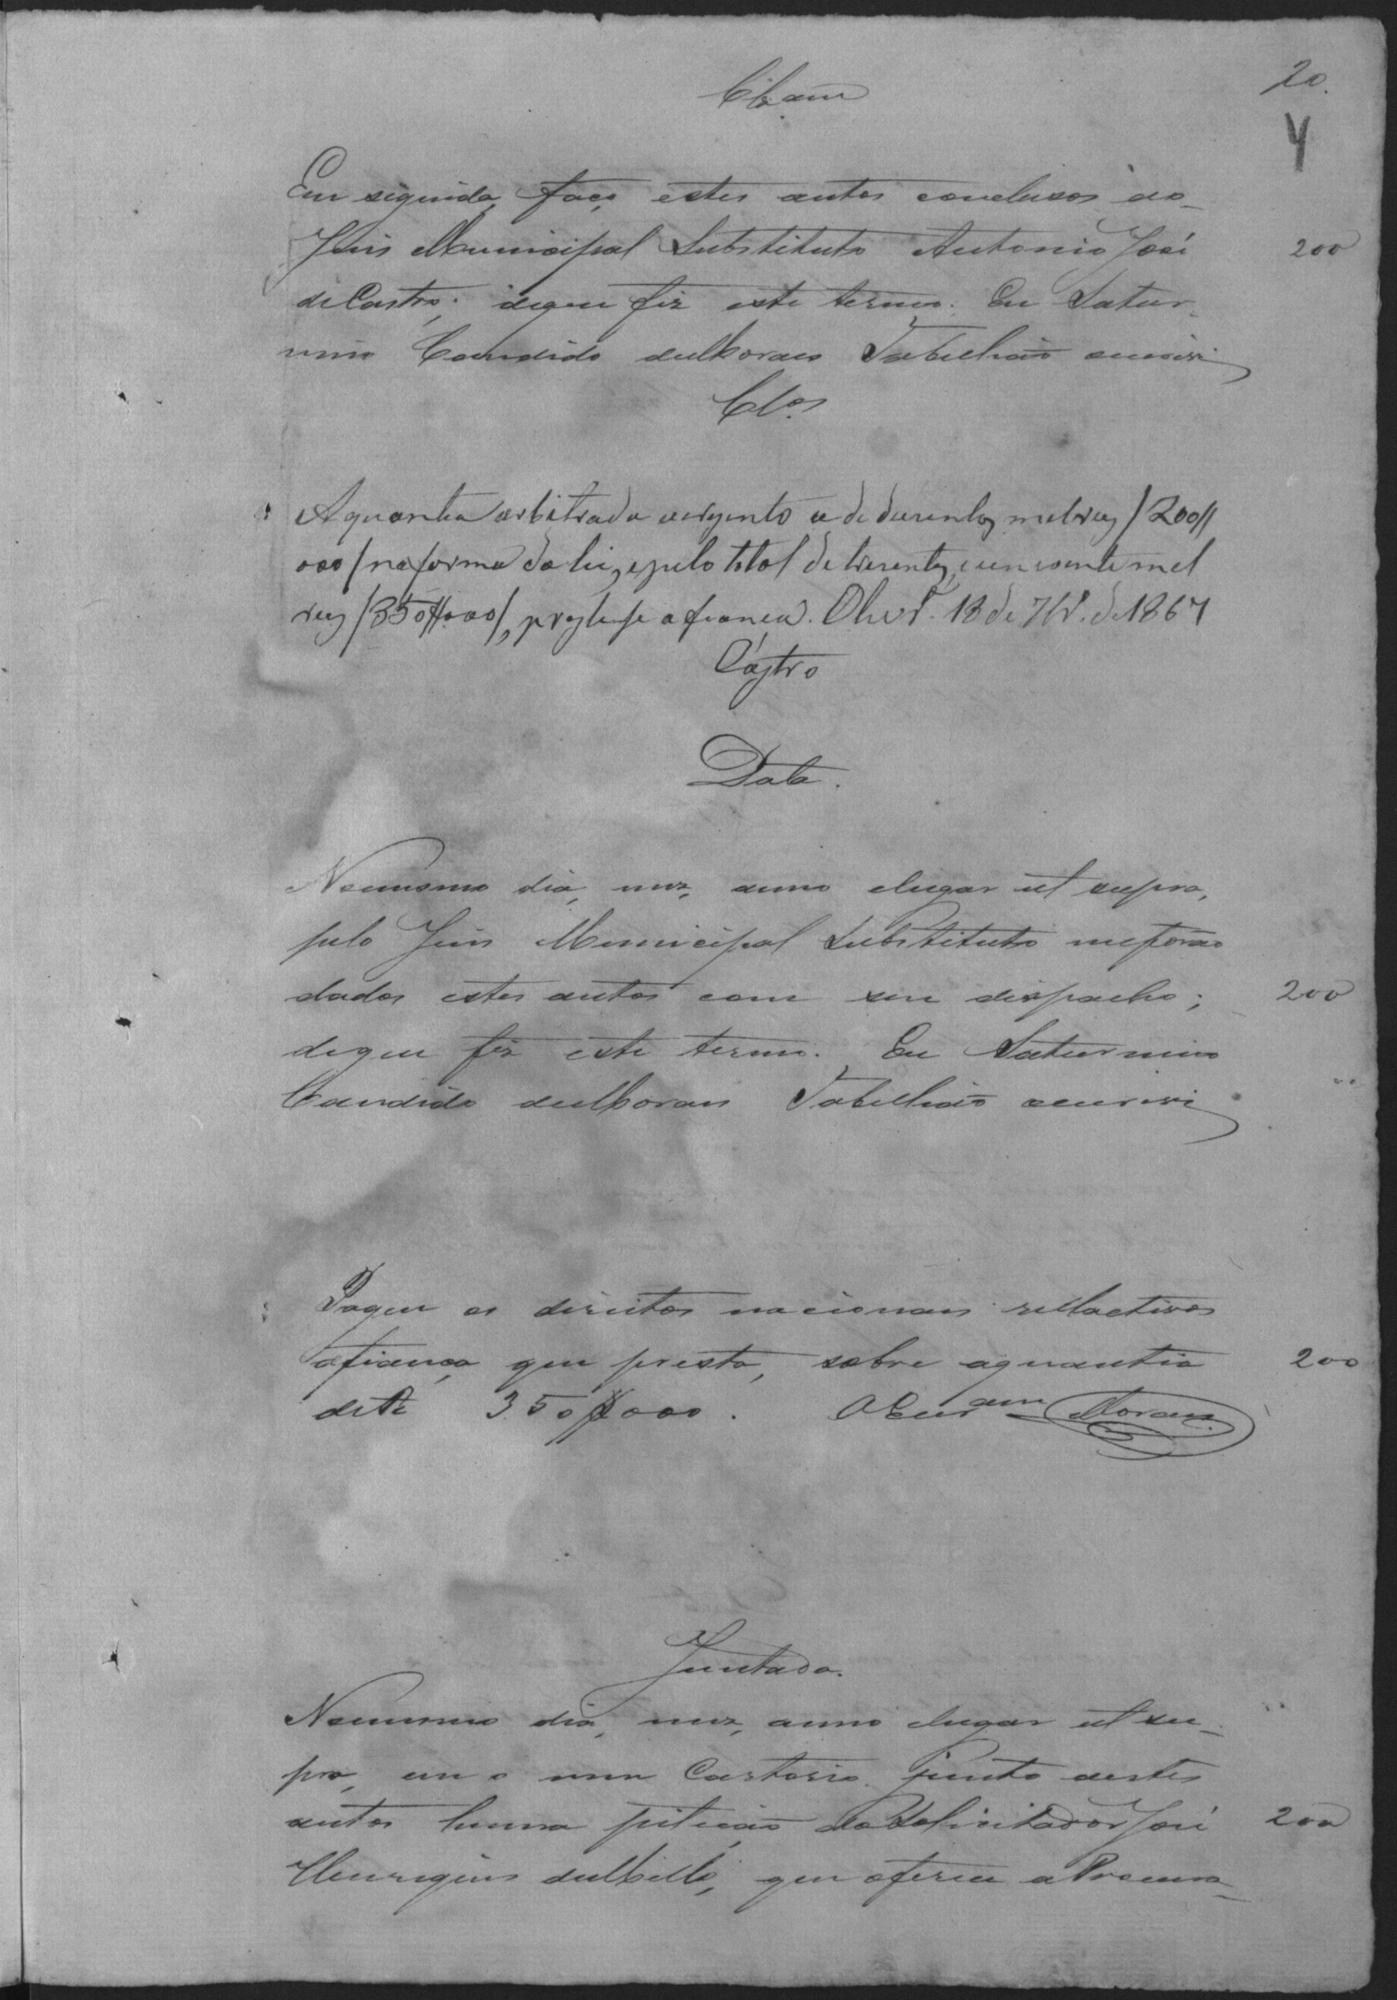 20.
4
Clzam
Em seguida, faço estes autos conclusos ao
Juis Municipal Substituto Antonio José 200
de Castro; deque fiz este termo. Eu Satur-
nino Candido deMoraes Tabellião escrevi
Clos
A quantia arbitrada augmento a de duzentos mil reis /200#
000/ na forma da lei, e pelo total de tresentos, e cincoenta mil
reis /350#000/, preste-se a fiança. 13 de 7br. de 1867
Castro
Data.
Nomesmo dia, mez, anno elugar ut supra,
pelo Juis Municipal Substituto meforão
dados estes autos com seu despacho; 200
deque fiz este termo. Eu Saturnino
Candido deMoraes Tabellião escrevi
Pagou os direitos nacionaes rellactivos
afiança, que presta, sobre aquantia 200
de 350$000. OEscram Moraes.
Juntada.
Nomesmo dia, mez, anno elugar ut su-
pra, em o meu Cartorio junto aestes
autos huma petição do Solicitador José 200
Henriques deMello, que oferece a Procura-